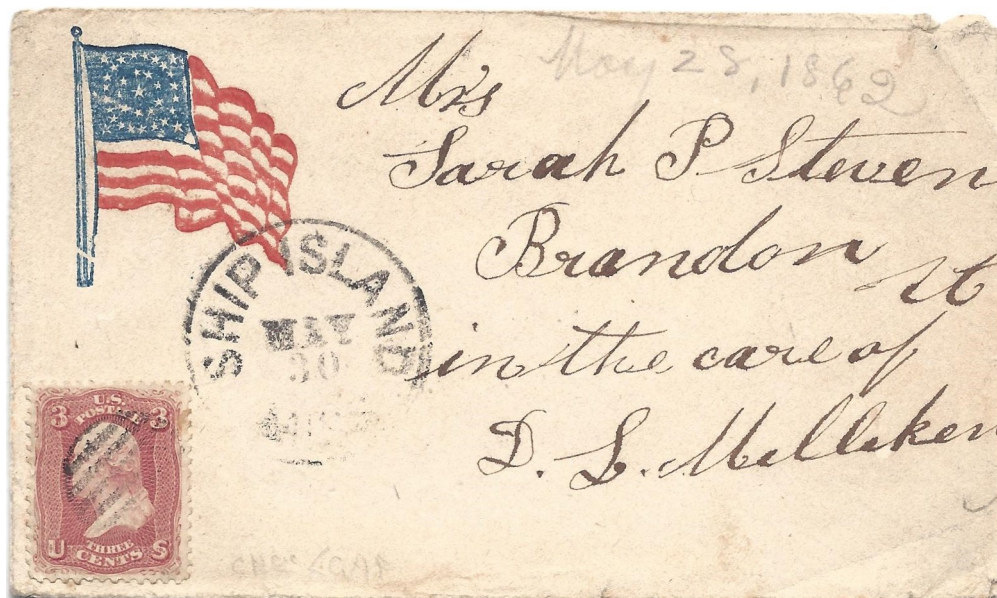 May 28, 1862
Mrs
Sarah P Steven
Brandon
in the care of
D. L. Milliken
SHIP ISLAND
MAY
30
3 U.S. 3
POSTAGE
U THREE S
CENTS